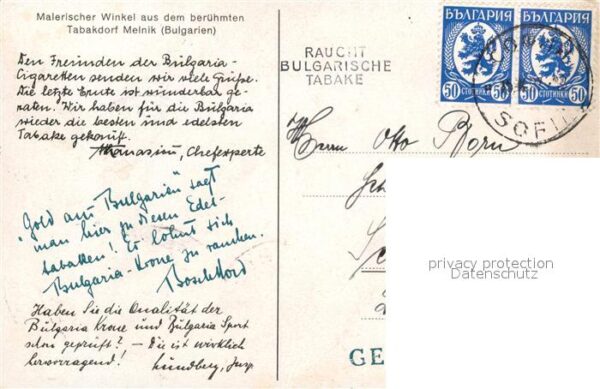 Malerischer Winkel aus dem berühmten
Tabakdorf Melnik (Bulgarien)
Den Freunden der Bulgaria-
Cigaretten senden wir viele Grüße.
Die letzte Ernte ist wunderbar ge-
raten! Wir haben für die Bulgaria
wieder die besten und edelsten
Tabake gekauft.
Athanasiu, Chefexperte
"Gold aus Bulgarien" sagt
man hier zu diesen Edel-
tabaken! Es lohnt sich
Bulgaria-Krone zu rauchen.
Haben Sie die Qualität der
Bulgaria Krone und Bulgaria Sport
schon geprüft? – Die ist wirklich
hervorragend! Lundberg, Insp
RAUCHT
BULGARISCHE
TABAKE
БЪЛГАРИЯ БЪЛГАРИЯ
50 СТОТИНКИ 50 50 СТОТИНКИ 50
SOFIA
Herrn Otto Born
privacy protection
Datenschutz
GE